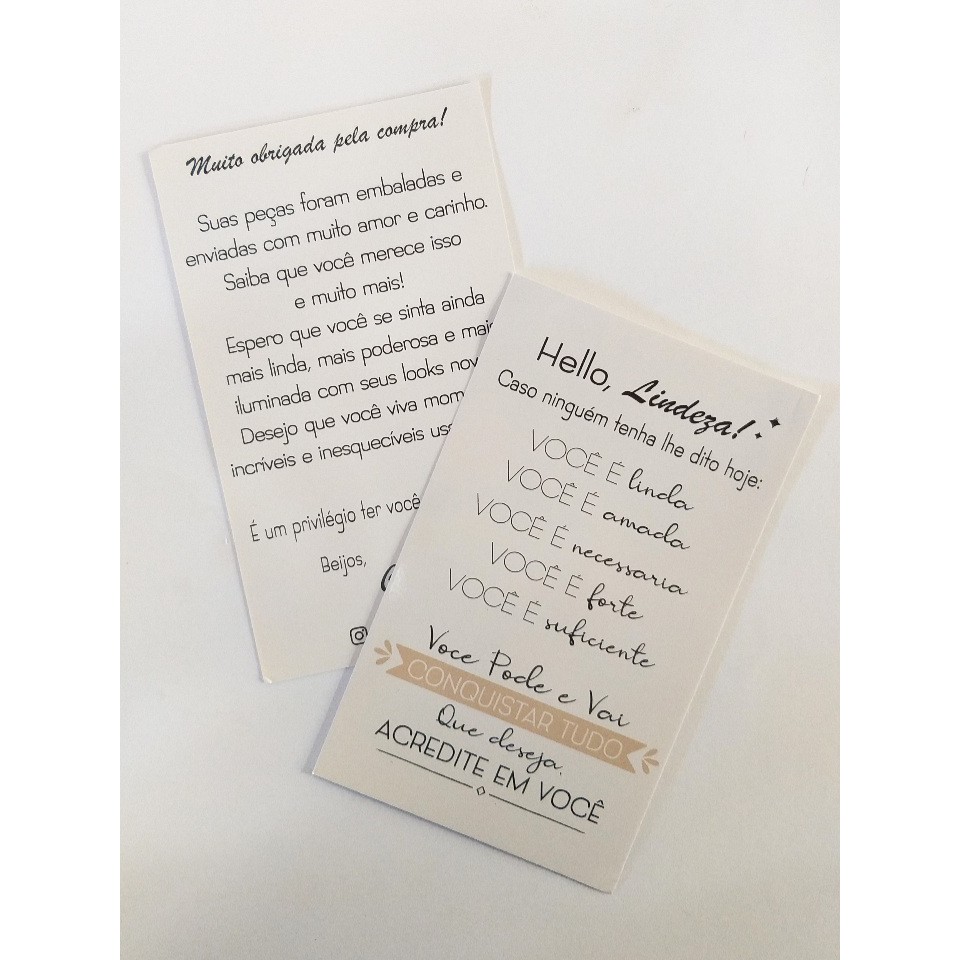 Muito obrigada pela compra!
Suas peças foram embaladas e
enviadas com muito amor e carinho.
Saiba que você merece isso
e muito mais!
Espero que você se sinta ainda
mais linda, mais poderosa e mais
iluminada com seus looks
Desejo que você viva
incríveis e inesquecíveis
É um privilégio ter você
Beijos,
Hello, Lindeza!
Caso ninguém tenha lhe dito hoje:
VOCÊ É linda
VOCÊ É amada
VOCÊ É necessaria
VOCÊ É forte
VOCÊ É suficiente
Voce Pode e Vai
CONQUISTAR TUDO
Que deseja.
ACREDITE EM VOCÊ